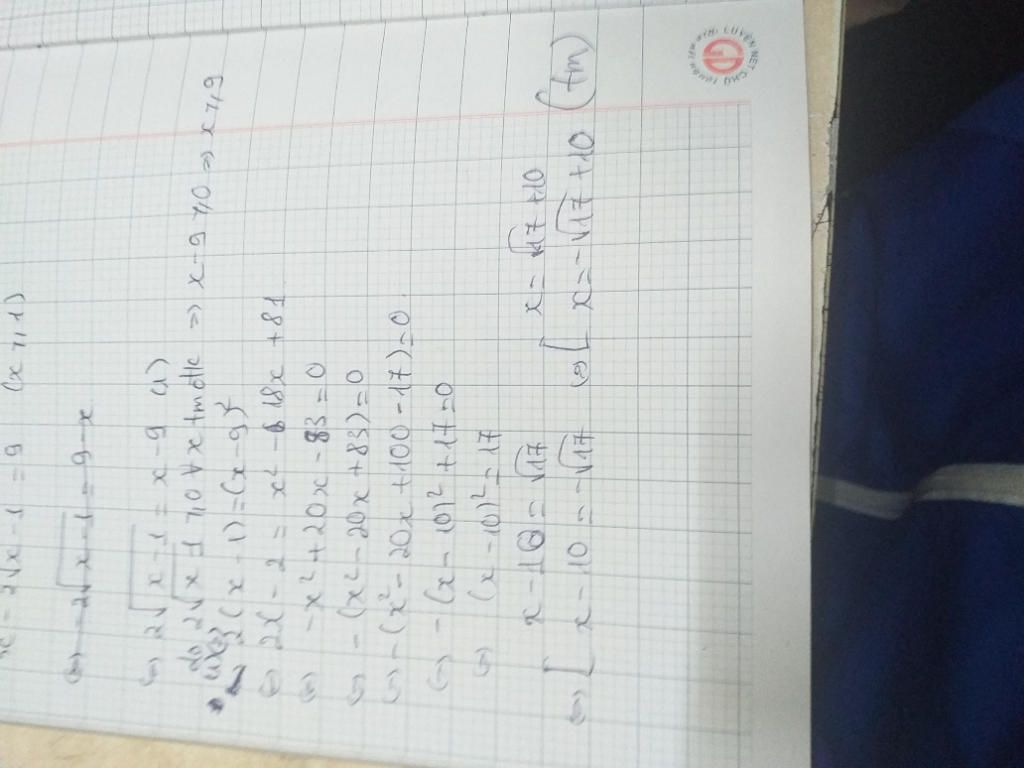 x - 2√x-1 = 9 (x ≥ 1)
(=) -2√x-1 = 9-x
(=) 2√x-1 = x-9 (1)
do 2√x-1 ≥ 0 ∀x tmđk => x-9 ≥ 0 => x ≥ 9
2(x-1) = (x-9)²
(=) 2x-2 = x² - 18x + 81
(=) -x² + 20x - 83 = 0
(=) -(x² - 20x + 83) = 0
(=) -(x² - 20x + 100 - 17) = 0
(=) -(x-10)² + 17 = 0
(=) (x-10)² = 17
(=) [ x-10 = √17 (=) [ x = √17 + 10
x-10 = -√17 x = -√17 + 10 (tm)
LUYỆN NÉT CHỮ